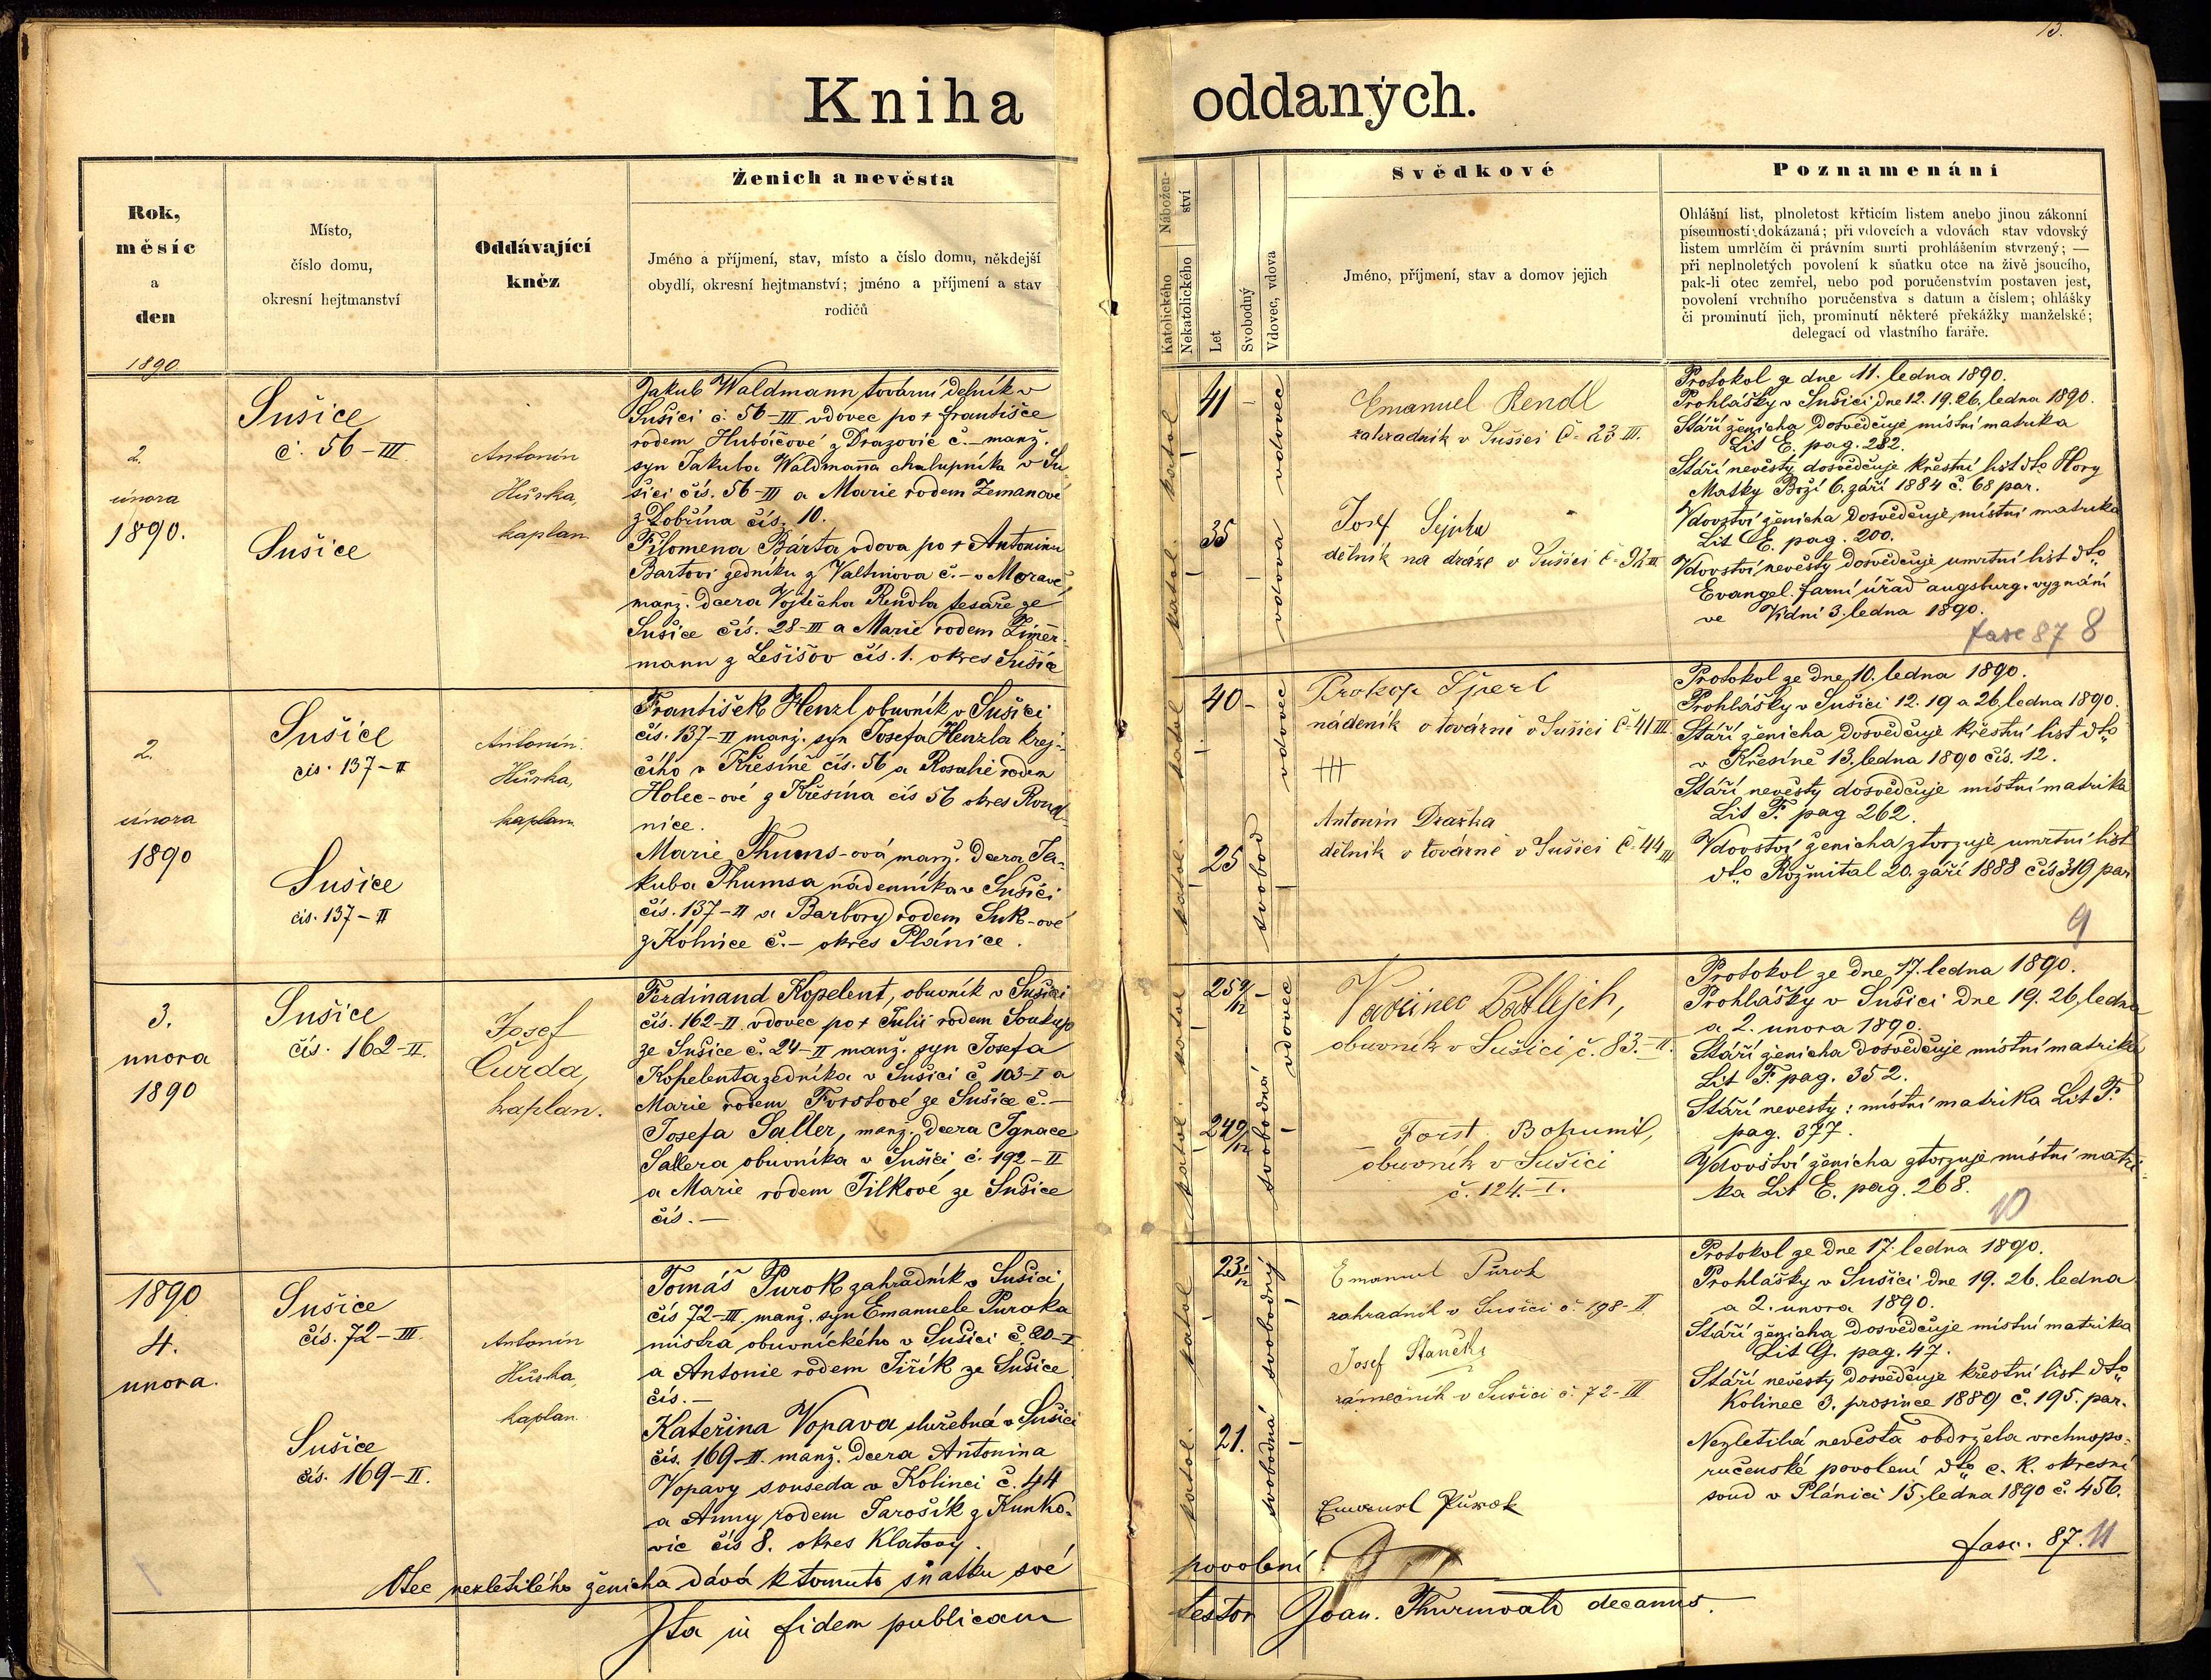 13.
Kniha oddaných.
Rok,
měsíc
a
den
Místo,
číslo domu,
okresní hejtmanství
Oddávající
kněz
Ženich a nevěsta
Jméno a příjmení, stav, místo a číslo domu, někdejší
obydlí, okresní hejtmanství; jméno a příjmení a stav
rodičů
Nábožen-
ství
Katolického
Nekatolického
Let
Svobodný
Vdovec, vdova
Svědkové
Jméno, příjmení, stav a domov jejich
Poznamenání
Ohlášní list, plnoletost křticím listem anebo jinou zákonní
písemností dokázaná; při vdovcích a vdovách stav vdovský
listem umrlčím či právním smrti prohlášením stvrzený; —
při neplnoletých povolení k sňatku otce na živě jsoucího,
pak-li otec zemřel, nebo pod poručenstvím postaven jest,
povolení vrchního poručenstva s datum a číslem; ohlášky
či prominutí jich, prominutí některé překážky manželské;
delegací od vlastního faráře.
1890
2.
února
1890.
Sušice
č. 56-III.
Sušice
Antonín
Hůrka,
kaplan.
Jakub Waldmann tovární dělník v
Sušici č. 56-III vdovec po + Františce
rodem Hubáčové z Drazovic č.— manž.
syn Jakuba Waldmanna chalupníka v Su-
šici čís. 56-III a Marie rodem Zemanové
z Dobřína čís. 10.
Filomena Bárta vdova po + Antonínu
Bartovi zedníku z Valtinova č.— v Moravě
manž. dcera Vojtěcha Rendla tesaře ze
Sušice čís. 28-III a Marie rodem Zimer-
mann z Lešišov čís. 1. okres Sušice
katol. katol.
41
35
vdovec
vdova
Emanuel Rendl
zahradník v Sušici č. 23 III.
Josef Sejpka
dělník na dráze v Sušici č. 92 III
Protokol ze dne 11. ledna 1890.
Prohlášky v Sušici dne 12. 19. 26. ledna 1890.
Stáří ženicha dosvědčuje místní matrika
Lit E. pag. 282.
Stáří nevěsty dosvědčuje křestní list dto Hory
Matky Boží 6. září 1884 č. 68 par.
Vdovství ženicha dosvědčuje místní matrika
Lit E. pag. 200.
Vdovství nevěsty dosvědčuje umrtní list dto
Evangel. farní úřad augsburg. vyznání
ve Vídni 3. ledna 1890.
fasc 87 8
2.
února
1890
Sušice
čís. 137-II
Sušice
čís. 137-II
Antonín
Hůrka,
kaplan.
František Henzl obuvník v Sušici
čís. 137-II manž. syn Josefa Henzla krej-
čího v Křesíně čís. 56 a Rosalie rodem
Holec-ové z Křesína čís 56 okres Roud-
nice.
Marie Thums-ová manž. dcera Ja-
kuba Thumsa nádenníka v Sušici
čís. 137-II a Barbory rodem Suk-ové
z Kolnice č.— okres Plánice.
katol. katol
40
25
vdovec
svobod
Prokop Šperl
nádeník v továrně v Sušici č. 41 III.
+++
Antonín Dražka
dělník v továrně v Sušici č. 44 III
Protokol ze dne 10. ledna 1890.
Prohlášky v Sušici 12. 19 a 26. ledna 1890.
Stáří ženicha dosvědčuje křestní list dto
v Křesíně 13. ledna 1890 čís. 12.
Stáří nevěsty dosvědčuje místní matrika
Lit F. pag 262.
Vdovství ženicha ztvrzuje umrtní list
dto Rožmital 20. září 1888 čís 319 par
9
3.
unora
1890
Sušice
čís. 162-II.
Josef
Curda,
kaplan.
Ferdinand Kopelent, obuvník v Sušici
čís. 162-II vdovec po + Julii rodem Soukup
ze Sušice č. 24-II manž. syn Josefa
Kopelenta zedníka v Sušici č 103-I a
Marie rodem Forstové ze Sušice č.—
Josefa Saller, manž. dcera Ignace
Sallera obuvníka v Sušici č. 192-II
a Marie rodem Tilkové ze Sušice
čís.—
katol. katol
25 9/12
24 9/12
vdovec
svobodná
Vavřinec Batlejch,
obuvník v Sušici č. 83.-II.
Forst Bohumil,
obuvník v Sušici
č. 124.-I.
Protokol ze dne 17. ledna 1890.
Prohlášky v Sušici dne 19. 26. ledna
a 2. unora 1890.
Stáří ženicha dosvědčuje místní matrika
Lit F. pag. 352.
Stáří nevesty: místní matrika Lit F.
pag. 377.
Vdovství ženicha ztvrzuje místní matri-
ka Lit E. pag. 268.
10
1890
4.
unora.
Sušice
čís. 72-III.
Sušice
čís. 169-II.
Antonín
Hůrka,
kaplan.
Tomáš Purok zahradník v Sušici,
čís 72-III. manž. syn Emanuele Puroka
mistra obuvnického v Sušici č 20-I
a Antonie rodem Jiřík ze Sušice
čís.—
Kateřina Vopava služebná v Sušici
čís. 169-II. manž. dcera Antonína
Vopavy souseda v Kolinci č. 44
a Anny rodem Jarošík z Kunko-
vic čís 8. okres Klatovy.
katol. katol
23
21.
svobodný
svobodná
Emanuel Půrok
zahradník v Sušici č. 198-II
Josef
zámečník v Sušici č. 72-III
Emanuel Půrok
Protokol ze dne 17. ledna 1890.
Prohlášky v Sušici dne 19. 26. ledna
a 2. unora 1890.
Stáří ženicha dosvědčuje místní matrika
Lit G. pag. 47.
Stáří nevěsty dosvědčuje křestní list dto
Kolinec 3. prosince 1889 č. 195. par.
Nezletilá nevěsta obdržela vrchnopo-
ručenské povolení dto c. k. okresní
soud v Plánici 15. ledna 1890 č. 456.
fasc. 87. 11
Otec nezletilého ženicha dává k tomuto sňatku své povolení.
Ita in fidem publicam testor Joan. decanus.